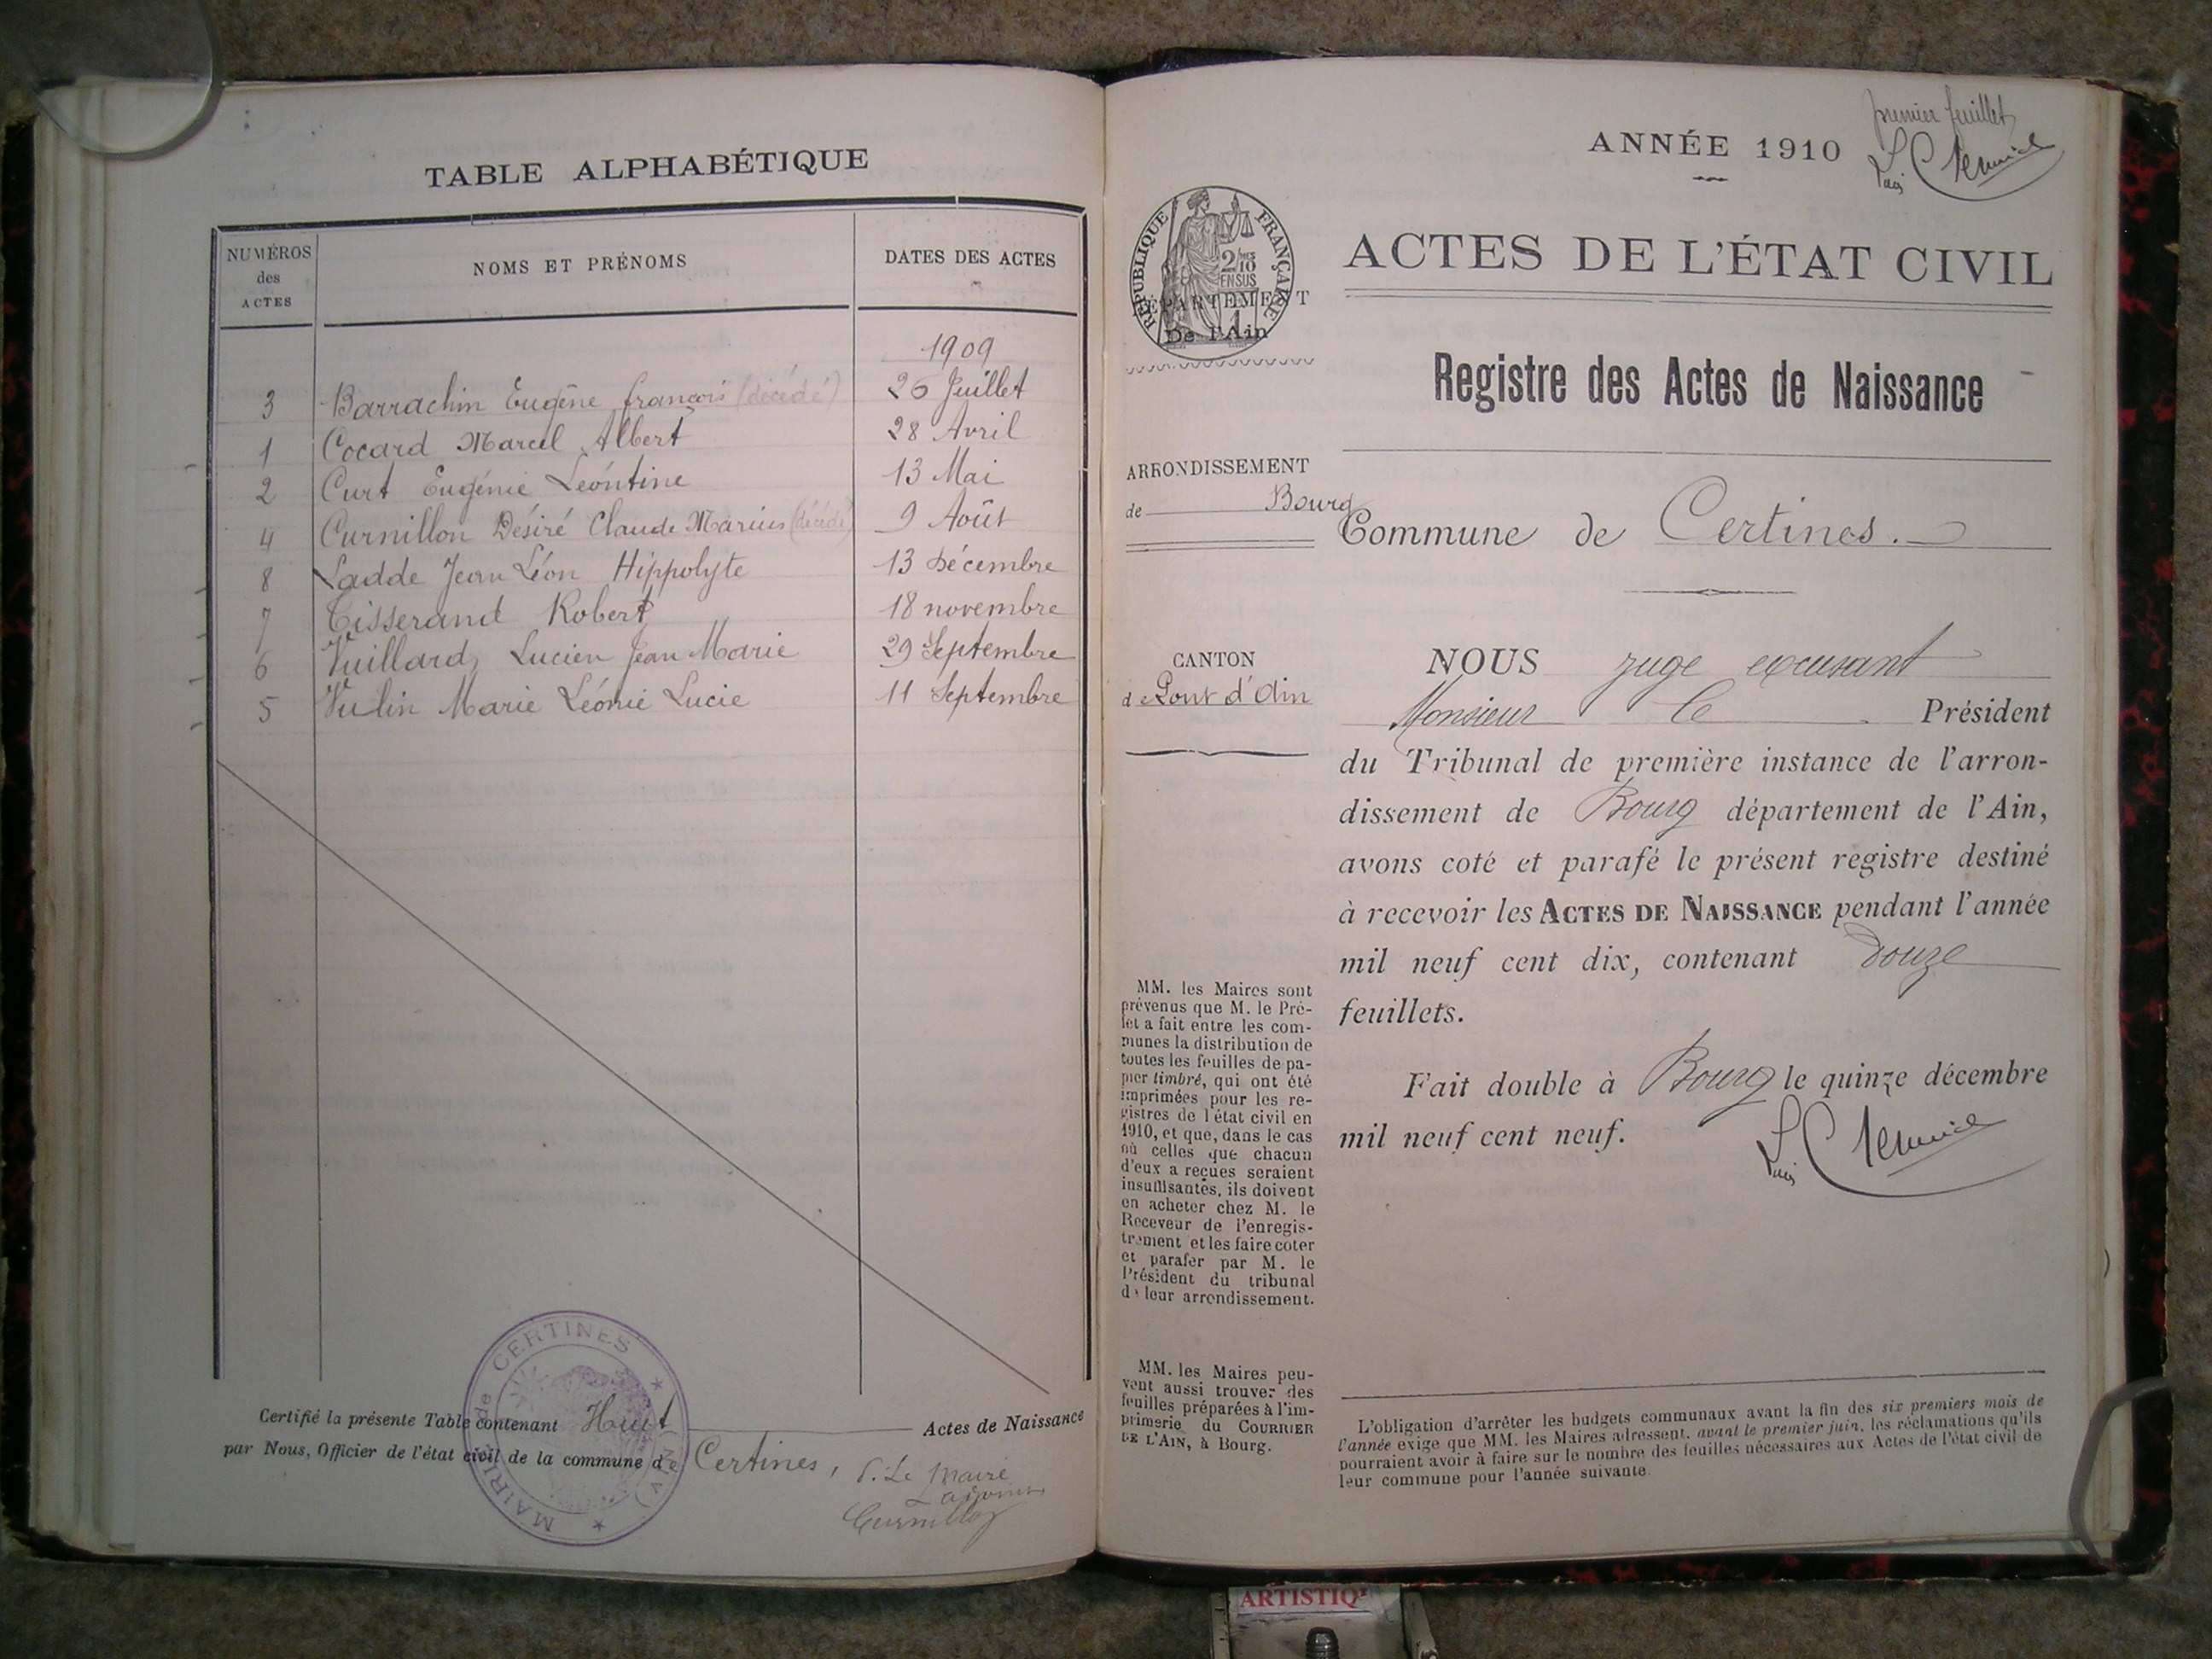 TABLE ALPHABÉTIQUE
NUMÉROS des ACTES
NOMS ET PRÉNOMS
DATES DES ACTES
1909
3 Barrachin Eugène françois (décédé) 26 Juillet
1 Cocard Marcel Albert 28 Avril
2 Curt Eugénie Léontine 13 Mai
4 Curnillon Désiré Claude Marius (décédé) 9 Août
8 Ladde Jean Léon Hippolyte 13 Décembre
7 Tisserand Robert 18 novembre
6 Vuillard, Lucien Jean Marie 29 Septembre
5 Vulin Marie Léonie Lucie 11 Septembre
Certifié la présente Table contenant Huit Actes de Naissance
par Nous, Officier de l'état civil de la commune de Certines,
P. Le Maire
L'adjoint
Curnillon
MAIRIE de CERTINES (AIN)
premier feuillet
ANNÉE 1910
RÉPUBLIQUE FRANÇAISE
2/10 EN SUS
DÉPARTEMENT
De l'Ain
ACTES DE L'ÉTAT CIVIL
Registre des Actes de Naissance
ARRONDISSEMENT
de Bourg
Commune de Certines.
CANTON
de Pont d'Ain
NOUS juge excusant
Monsieur le Président
du Tribunal de première instance de l'arron-
dissement de Bourg département de l'Ain,
avons coté et parafé le présent registre destiné
à recevoir les ACTES DE NAISSANCE pendant l'année
mil neuf cent dix, contenant douze
feuillets.
Fait double à Bourg le quinze décembre
mil neuf cent neuf.
MM. les Maires sont
prévenus que M. le Pré-
fet a fait entre les com-
munes la distribution de
toutes les feuilles de pa-
pier timbré, qui ont été
imprimées pour les re-
gistres de l'état civil en
1910, et que, dans le cas
où celles que chacun
d'eux a reçues seraient
insuffisantes, ils doivent
en acheter chez M. le
Receveur de l'enregis-
trement et les faire coter
et parafer par M. le
Président du tribunal
de leur arrondissement.
MM. les Maires peu-
vent aussi trouver des
feuilles préparées à l'im-
primerie du COURRIER
DE L'AIN, à Bourg.
L'obligation d'arrêter les budgets communaux avant la fin des six premiers mois de
l'année exige que MM. les Maires adressent, avant le premier juin, les réclamations qu'ils
pourraient avoir à faire sur le nombre des feuilles nécessaires aux Actes de l'état civil de
leur commune pour l'année suivante.
ARTISTIQ